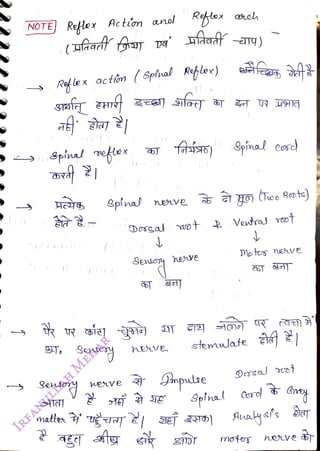 NOTE Reflex Action and Reflex arch
( प्रतिवर्ती क्रिया एवं प्रतिवर्ती -चाप )
→ Reflex action ( Spinal Reflex) अनैच्छिक होती है
अर्थात् हमारी इच्छा शक्ति का इन पर प्रभाव
नहीं होता है।
→ Spinal reflex का नियंत्रण Spinal cord
करती है।
→ प्रत्येक Spinal nerve के दो मूल (Two Roots)
होते है -
Dorsal root & Ventral root
↓ ↓
Sensory nerve Motor nerve
का बना का बना
→ पैर पर कांटा चुभने या हाथ जलने पर त्वचा में
sensory nerve stemulate होती है।
→ Sensory nerve से Impulse Dorsal root
आता है जहाँ से यह Spinal Cord के Grey
matter में पहुँचता है। यहाँ इसका Analysis होता
है बहुत शीघ्र और आगे motor nerve को
IRFANULLAH MEHAR